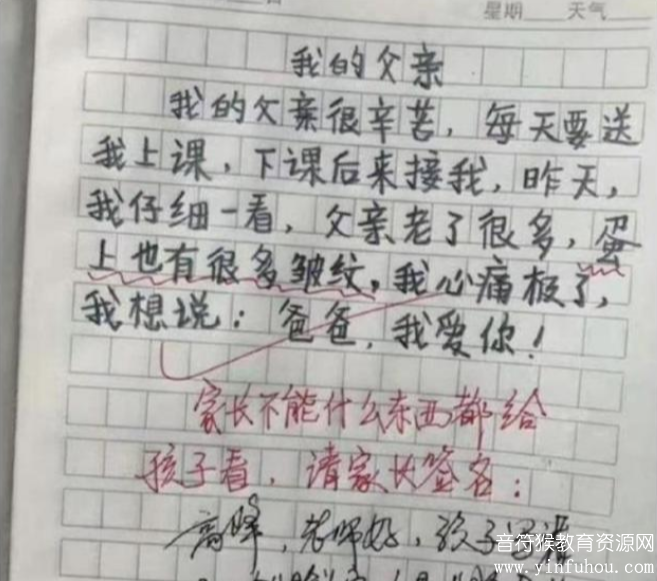 星期 天气
我的父亲
我的父亲很辛苦，每天要送
我上课，下课后来接我，昨天，
我仔细一看，父亲老了很多，蛋
上也有很多皱纹，我心痛极了，
我想说：爸爸，我爱你！
家长不能什么东西都给
孩子看，请家长签名：
高峰，老师好，孩子写错
音符猴教育资源网
www.yinfuhou.com